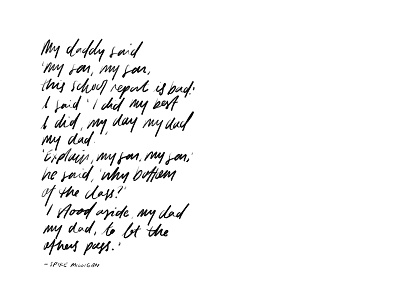 My daddy said
'My son, my son,
this school report is bad.'
I said 'I did my best
I did, my dad my dad
my dad.'
'Explain, my son, my son,'
he said, 'why bottom
of the class?'
'I stood aside, my dad
my dad, to let the
others pass.'
- SPIKE MILLIGAN